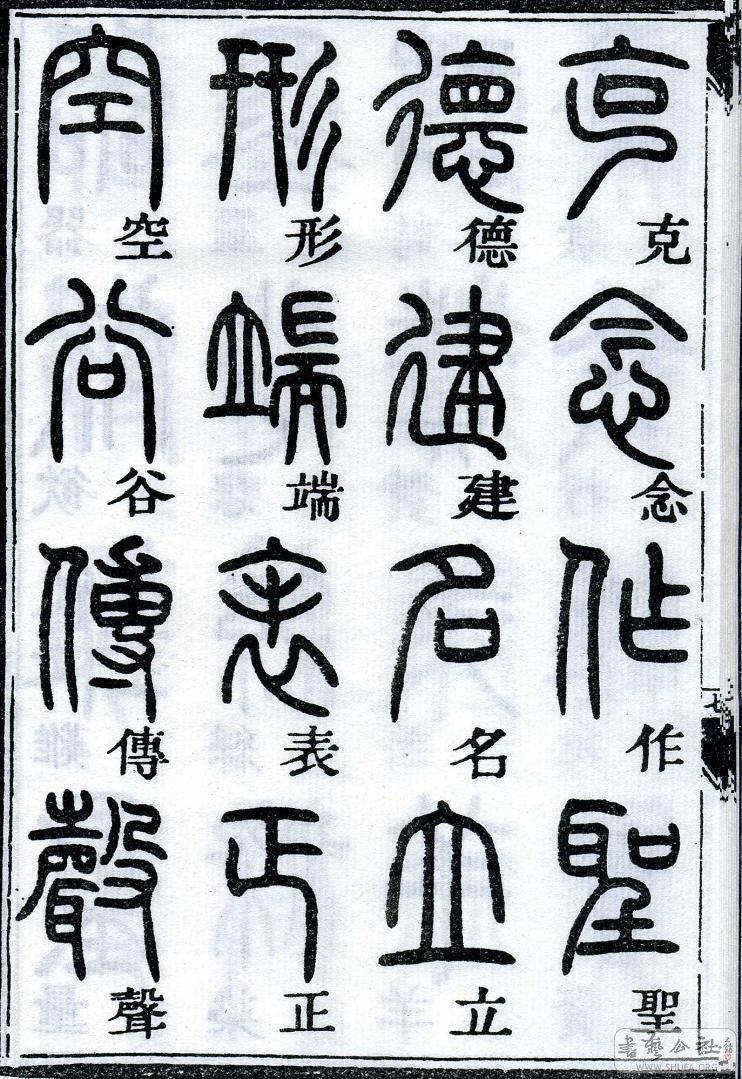 克念作聖
德建名立
形端表正
空谷傳聲
七
書藝公社
WWW.SHUFA.ORG